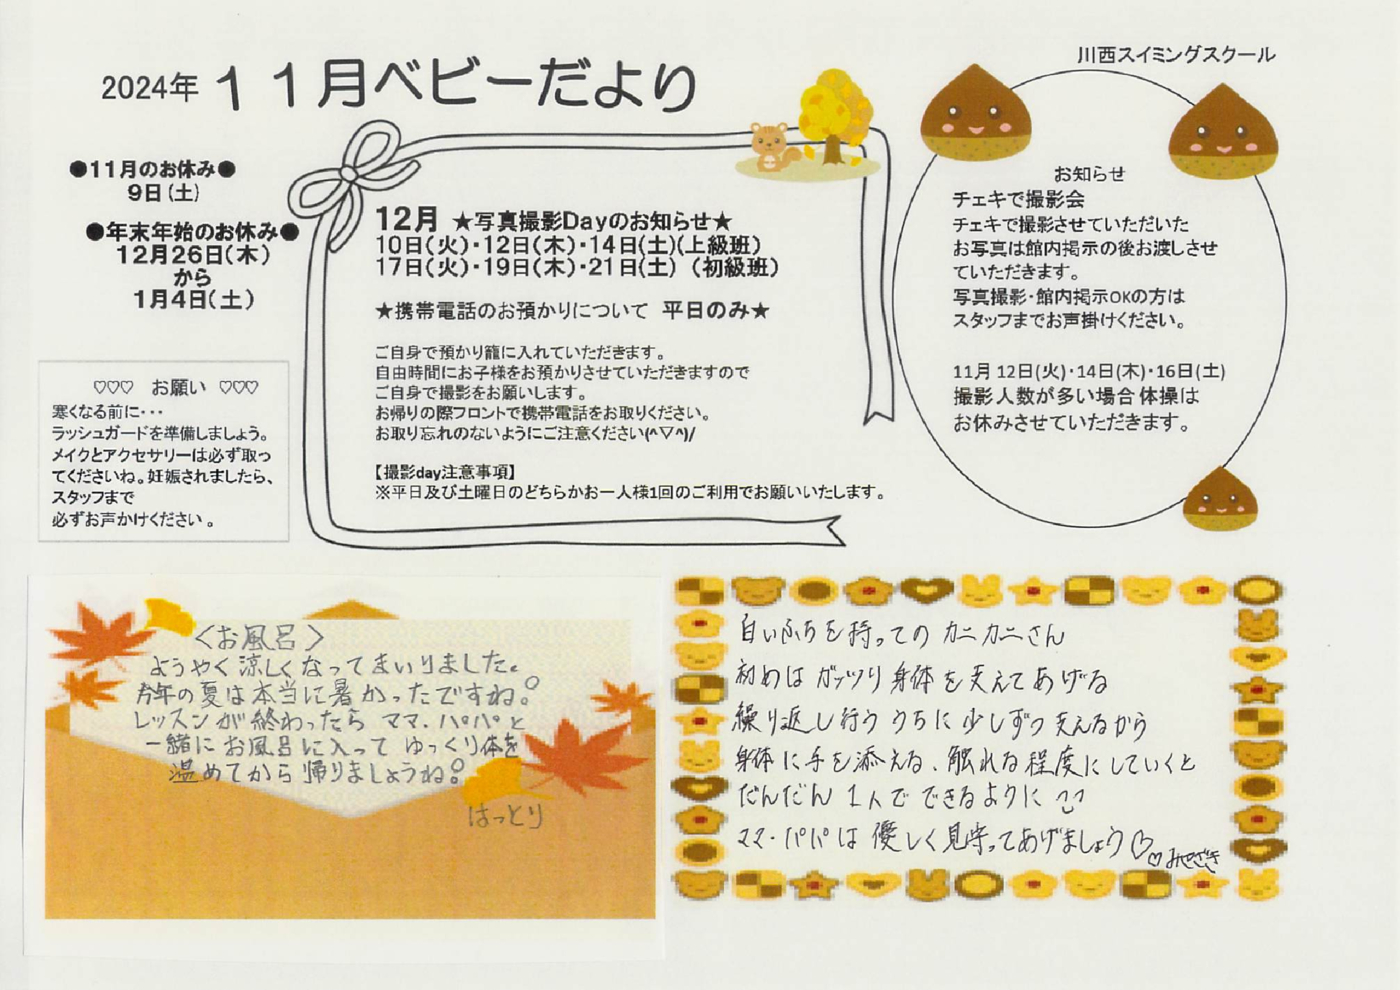 川西スイミングスクール
2024年 11月ベビーだより
●11月のお休み●
9日(土)
●年末年始のお休み●
12月26日(木)
から
1月4日(土)
♡♡♡ お願い ♡♡♡
寒くなる前に・・・
ラッシュガードを準備しましょう。
メイクとアクセサリーは必ず取っ
てくださいね。妊娠されましたら、
スタッフまで
必ずお声かけください。
12月 ★写真撮影Dayのお知らせ★
10日(火)・12日(木)・14日(土)(上級班)
17日(火)・19日(木)・21日(土) (初級班)
★携帯電話のお預かりについて 平日のみ★
ご自身で預かり籠に入れていただきます。
自由時間にお子様をお預かりさせていただきますので
ご自身で撮影をお願いします。
お帰りの際フロントで携帯電話をお取りください。
お取り忘れのないようにご注意ください(^▽^)/
【撮影day注意事項】
※平日及び土曜日のどちらかお一人様1回のご利用でお願いいたします。
お知らせ
チェキで撮影会
チェキで撮影させていただいた
お写真は館内掲示の後お渡しさせ
ていただきます。
写真撮影・館内掲示OKの方は
スタッフまでお声掛けください。
11月 12日(火)・14日(木)・16日(土)
撮影人数が多い場合体操は
お休みさせていただきます。
<お風呂>
ようやく涼しくなってまいりました。
今年の夏は本当に暑かったですね。
レッスンが終わったら ママ・パパと
一緒にお風呂に入って ゆっくり体を
温めてから帰りましょうね。
はっとり
白いふちを持っての カニカニさん
初めは ガッツリ身体を支えてあげる
繰り返し行ううちに 少しずつ支えるから
身体に手を添える、触れる程度にしていくと
だんだん 1人で できるように
ママ・パパは 優しく見守ってあげましょう♡
♡みやざき